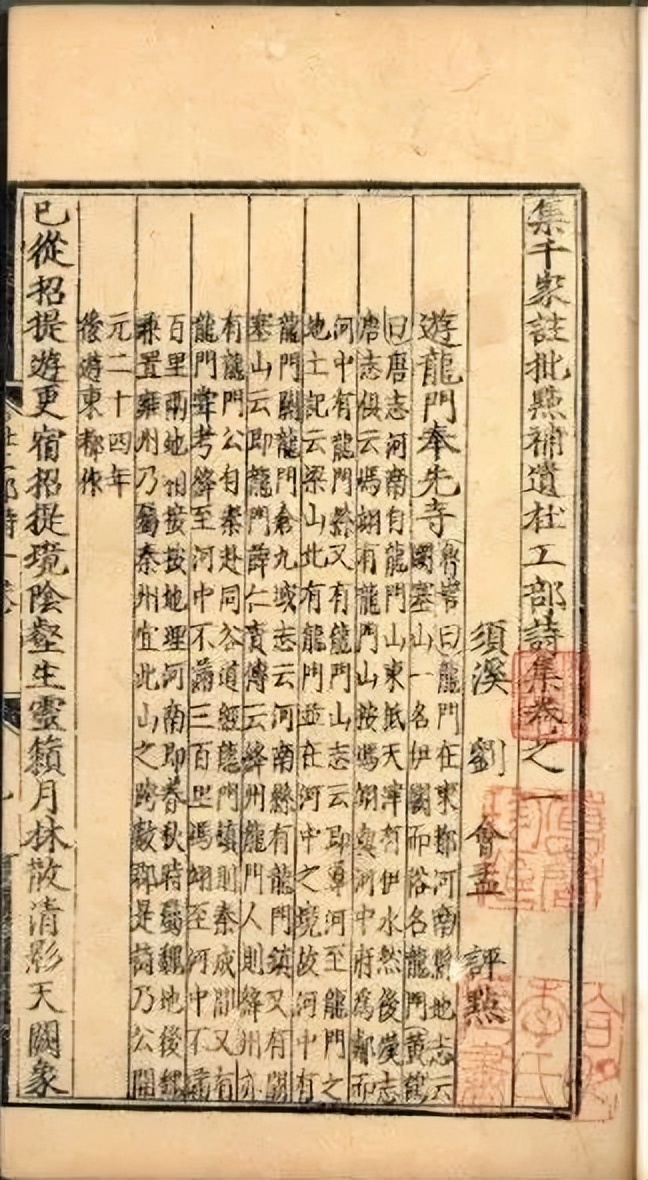 集千家註批點補遺杜工部詩集卷之一
須溪 劉 會孟 評點
遊龍門奉先寺
魯訔曰龍門在東都河南縣地志云
闕塞山一名伊闕而俗名龍門黃鶴
曰唐志河南自龍門山東抵天津有伊水然後漢志
唐志俱云馮翊有龍門山按馮翊與河中府爲鄰而
河中有龍門縣又有龍門山志云即導河至龍門之
地土記云梁山北有龍門並在河中之境故河中有
龍門關龍門倉九域志云河南縣有龍門鎮又有闕
塞山云即龍門薛仁貴傳云絳州龍門人則絳州亦
有龍門公自秦赴同谷道經龍門鎮則秦成間又有
龍門嘗考絳至河中不滿三百里馮翊至河中不滿
百里兩地相接按地理河南即春秋時屬魏地後魏
兼置雍州乃屬秦州宜此山之跨數郡是詩乃公開
元二十四年
後遊東都作
已從招提遊更宿招提境陰壑生靈籟月林散清影天闕象